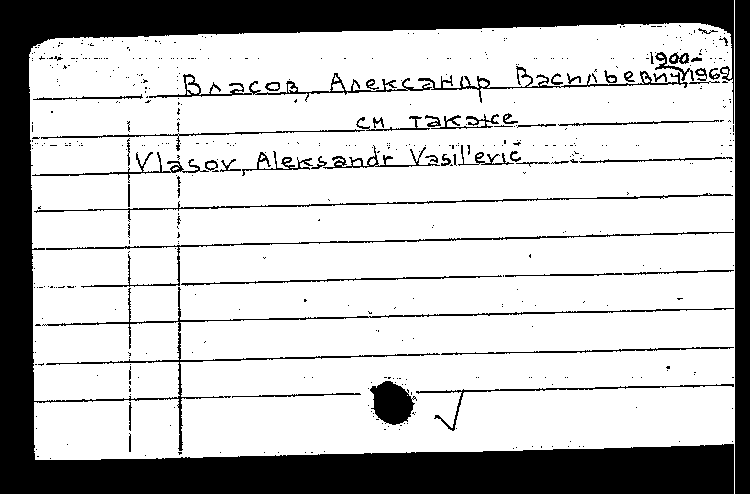 Власов, Александр Васильевич, 1900-1962
см. также
Vlasov, Aleksandr Vasil'evič